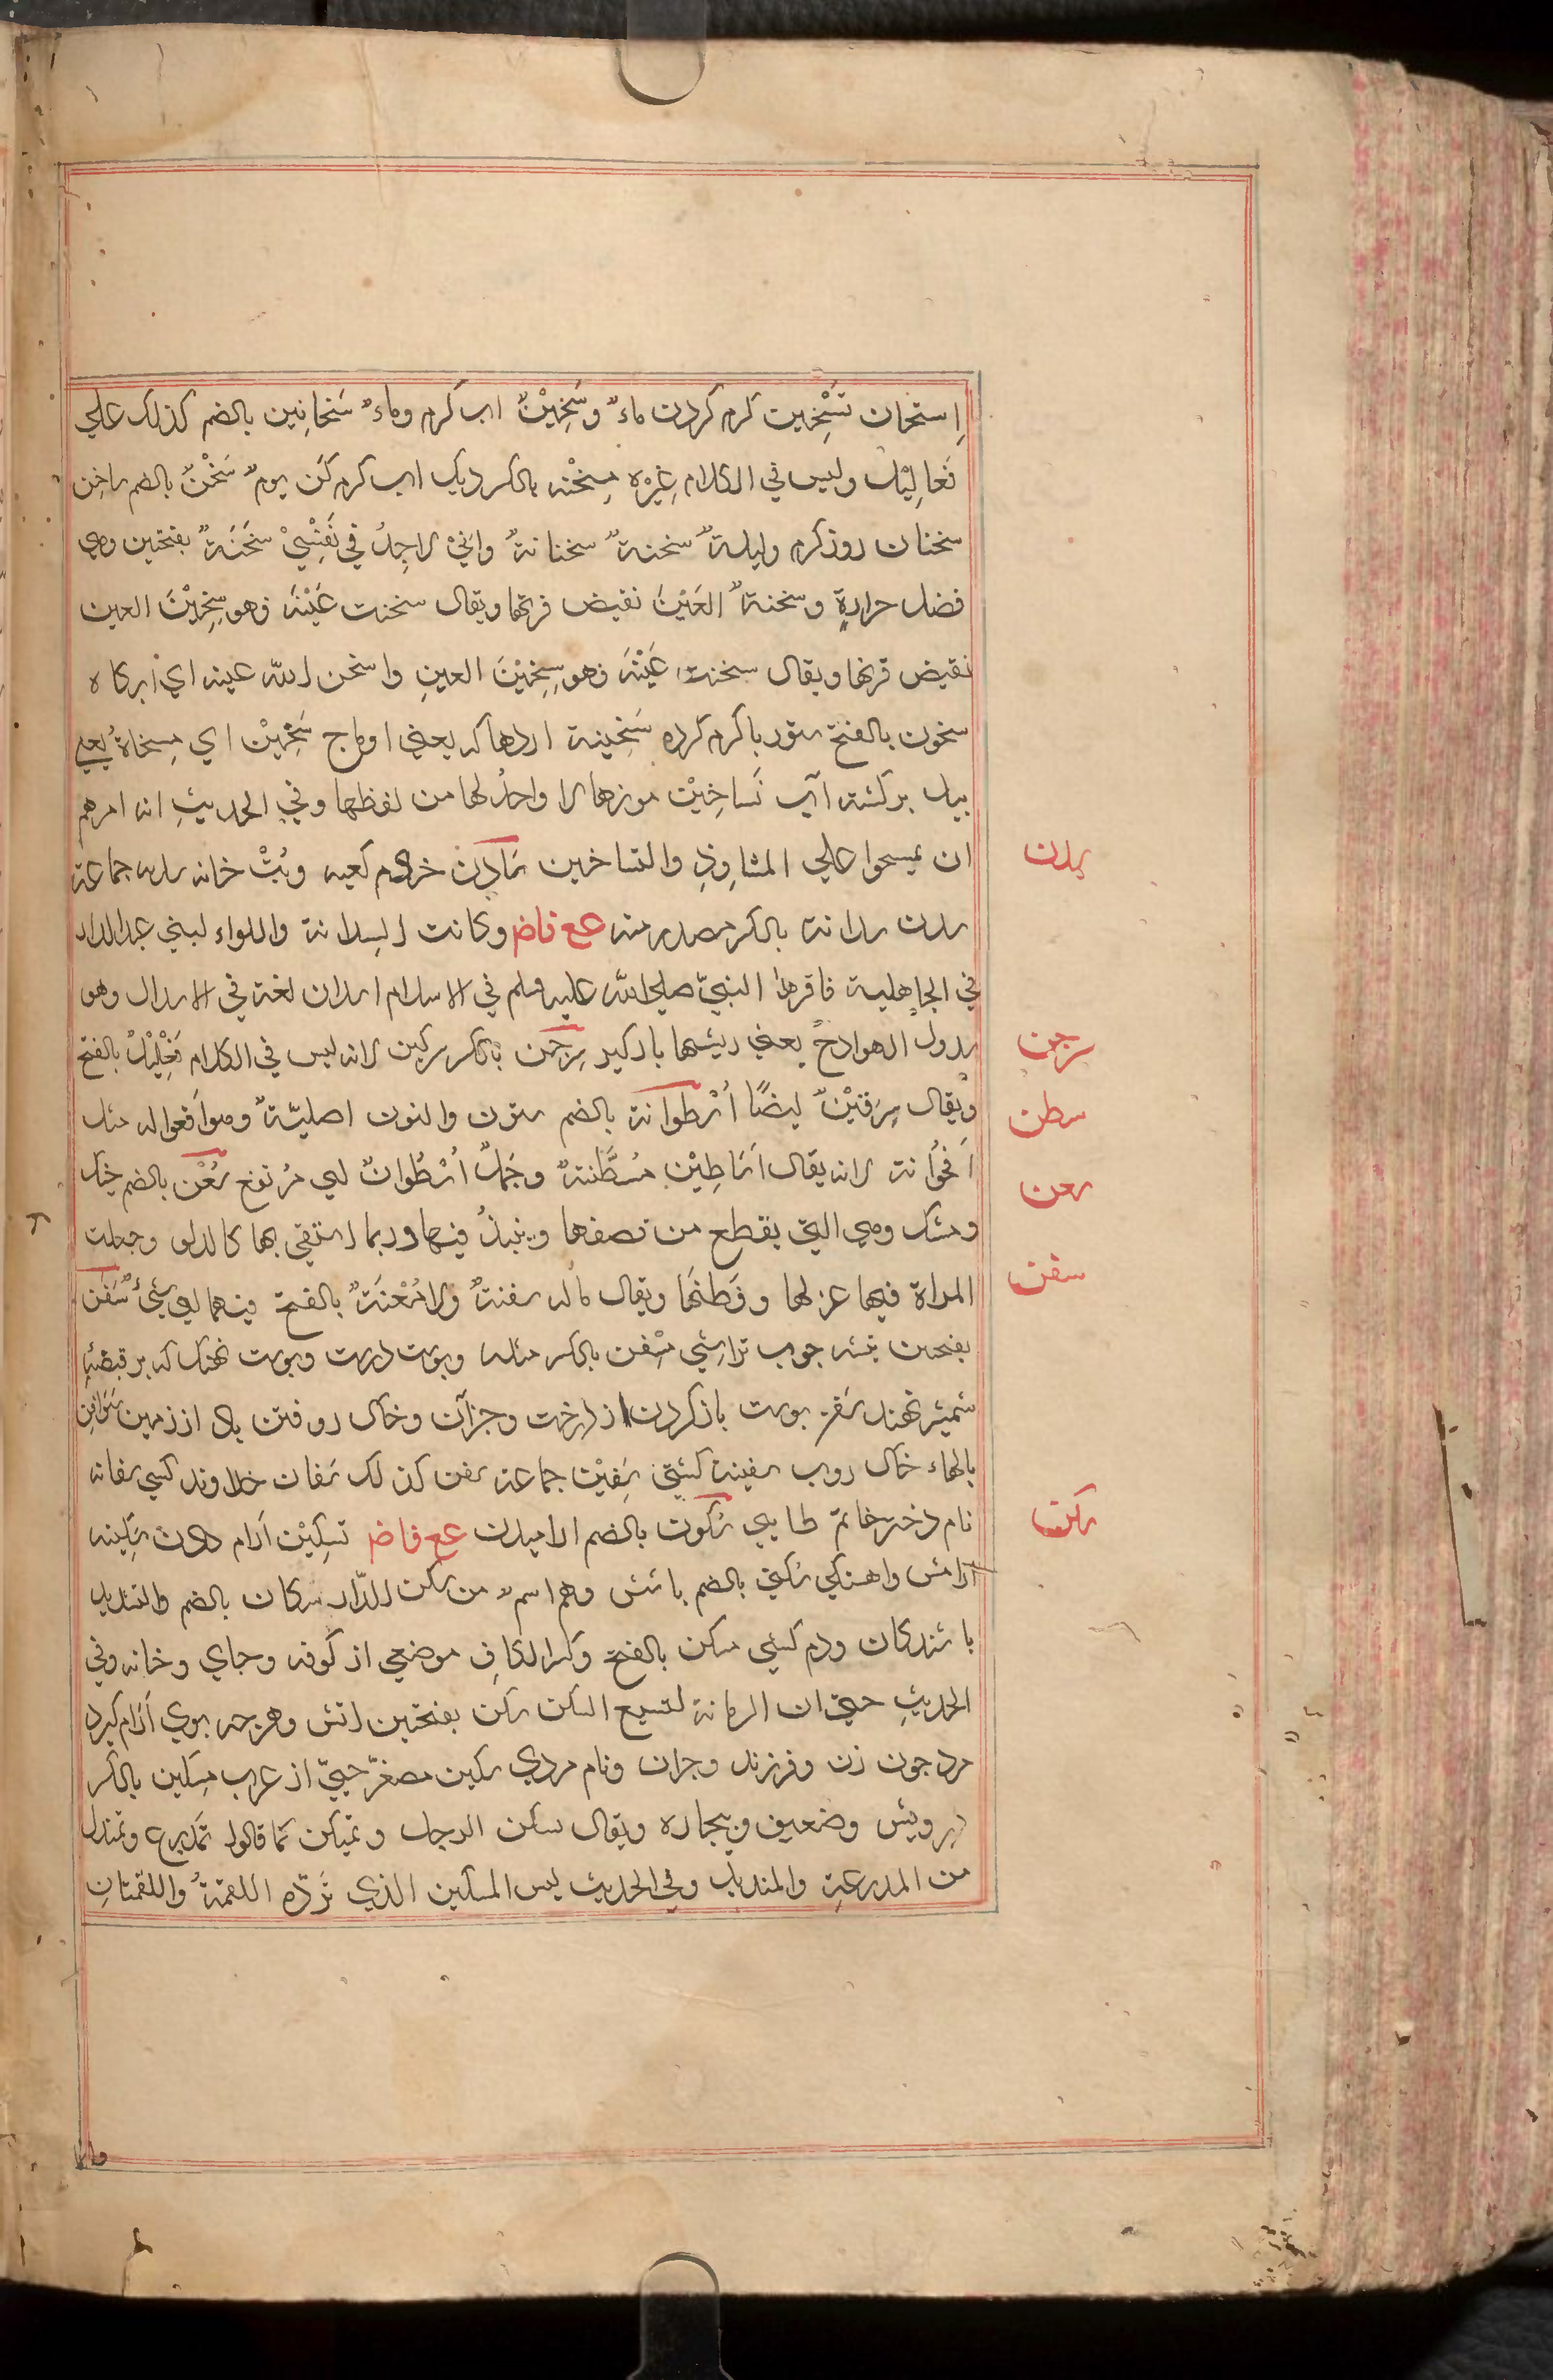 إستخان تَسْخِين کرم کردن ماءٌ وسَخِيْنٌ اب کرم وماءٌ سَخاخِين بالضم کذلک علي
فَعاليْل وليس في الکلام غيره مِسْخنه بالکسر ديک اب کرم کن يومٌ سَخْنٌ بالضم ساخن
سخنان روز کرم وليلةٌ سخنةٌ سخنانةٌ واني لاجِدُ في نَفْسِيْ سَخَنَةٌ بفتحتين وهي
فضل حرارةٍ وسخنةُ العَيْنِ نقيض قرتها ويقال سخنت عَيْنَه فهو سخِيْنَ العين
نقيض قرتها ويقال سخنت عَيْنَه فهو سخِيْنَ العينِ واسخن الله عينه اي ابکاه
سخون بالفتح شوربا کرم کرده سَخِينة اردهاکه يعني اوماج سَخِيْن اي مسحاةٌ يعني
بيل برکشته آب تَساخِيْن موزها لا واحدُ لها من لفظها وفي الحديثِ انه امرهم
ان يمسحوا علي المشاوِذِ والتساخين سَادِن خادم کعبه وبُتْ خانه سدنه جماعة
سدن سدانة بالکسر مصدر منه مع فاض وکانت السدانة واللواء لبني عبدالدار
في الجاهلية فاقرها النبيّ صلي الله عليه وسلم في الاسلام اسدان لغة في الاسدال وهو
سدول الهوادج يعني ريشها بادکير سِرجين بالکسر سرکين لانه ليس في الکلام فَعْلِيْلٌ بالفتح
ويقال سِرقيْنٌ ايضًا اُسْطوانة بالضم ستون والنون اصليّةٌ وهو افعواله مثل
اُقحُوانة لانه يقال اَسَاطِيْن مُسَطَّنةٌ وجَملٌ اُسْطُوانٌ اي مُرتفع سُعْن بالضم خيک
ومشک وهي التي يقطع من نصفها وينبذُ فيها وربما استقي بها کالدلو وجعلت
المراة فيها غزلها وقطنها ويقال ماله سعنةٌ ولا مُعْنَةٌ بالفتح فيهما اي شيءٌ سَفَن
بفتحين تيشه جوب تراشي مِسْفن بالکسر مثله وپوست درست وپوست نهنک که بر قبضه
شمشير نهند سَفْن پوست باز کردن از درخت وجزآن وخاک روفتن باد از زمين سَوَافِن
بالهاء خاک روب سفينة کشتي سَفِيْن جماعة سفن کذلک سَفان خداوند کشتي سفانه
نام دختر حاتم طايي سُکون بالضم ارامیدن مع فاض تسکِيْن آرام دادن سَکِينه
آرامش واهستکي سُکني بالضم باشش وهم اسمٌ من سکن الدّار سکان بالضم والتشديد
باشندکان ودم کشتي مسکن بالفتح وکسر الکاف موضعي از کوفه وجاي وخانه وفي
الحديثِ حتي ان الرمانة لتشبع السکن سکن بفتحتين اتش وهرجه بوي آرام کيرد
مرد جون زن وفرزند وجزان ونام مردي سکين مصغّر حييّ از عرب مِسکين بالکسر
درويش وضعيف وبيجاره ويقال تسکن الرجل وتمسکن کما قالوا تمدرع وتمندل
من المدرعةِ والمنديل وفي الحديث ليس المسکين الذي تَردّه اللقمةُ واللقمتانِ
سدن
سرجن
سطن
سعن
سفن
سکن